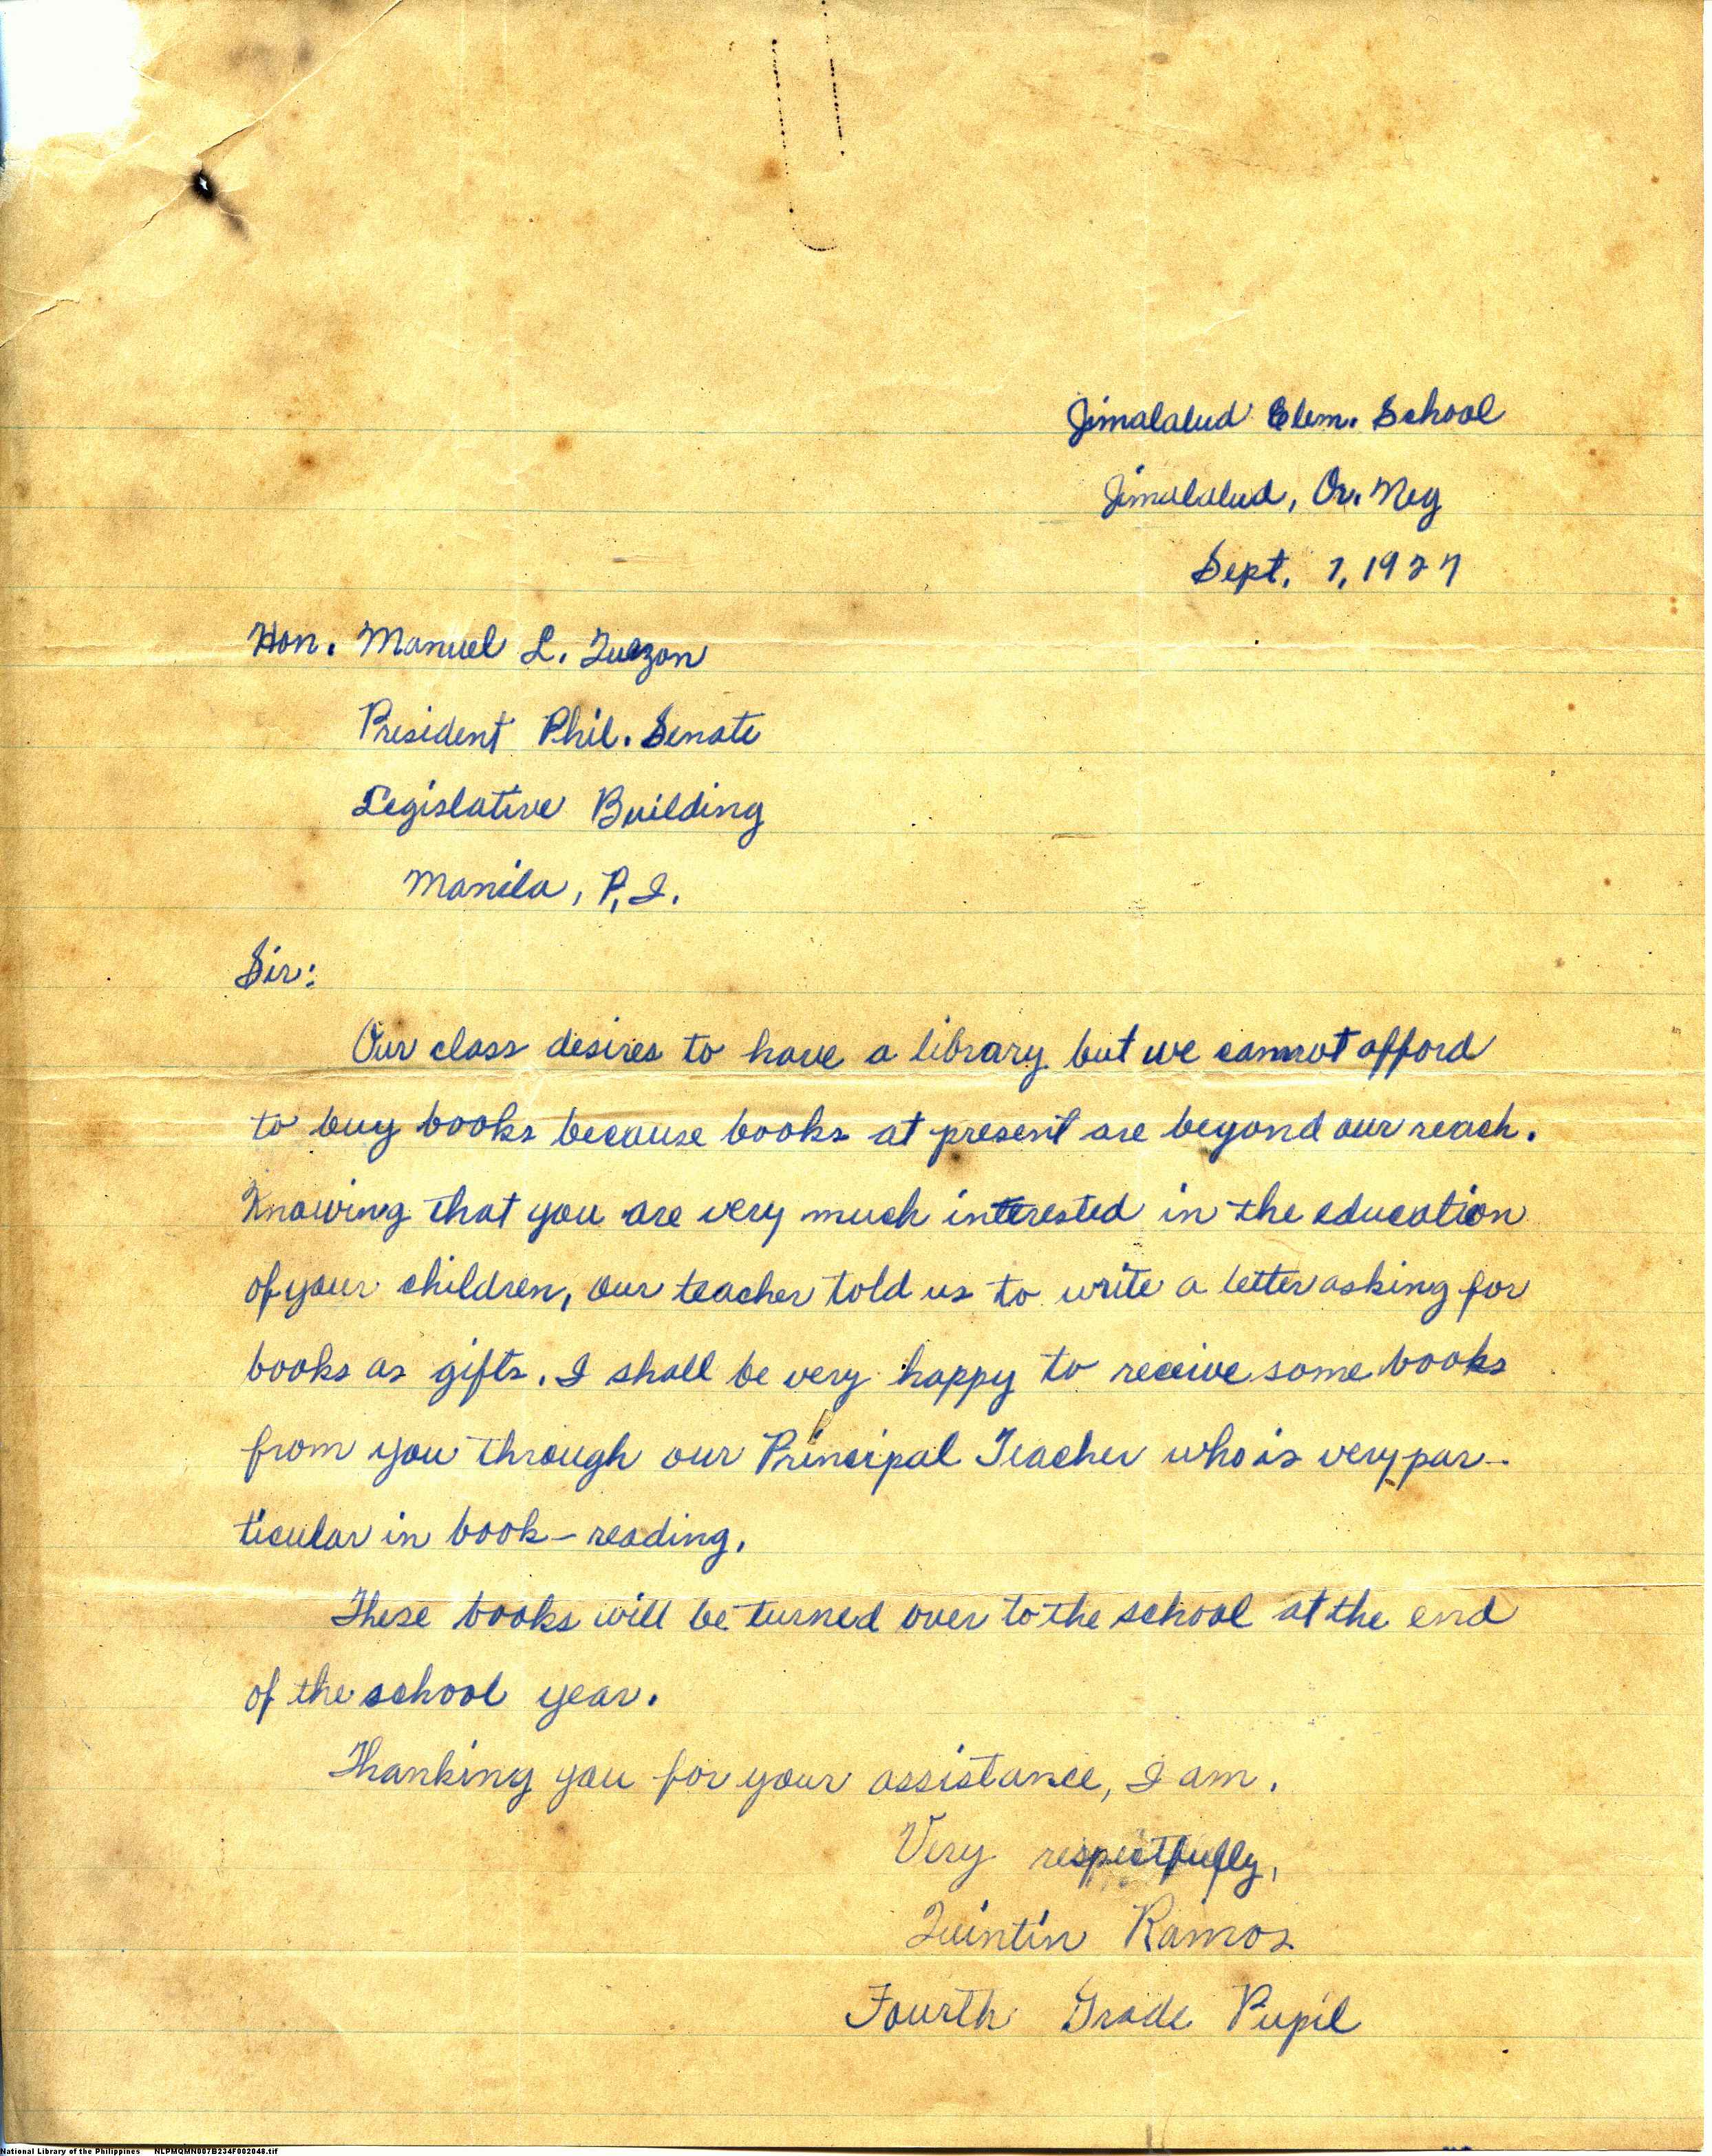 Jimalalud Elem. School
Jimalalud, Or. Neg
Sept. 7, 1927
Hon. Manuel L. Quezon
President Phil. Senate
Legislative Building
Manila, P.I.
Sir:
Our class desires to have a library but we cannot afford
to buy books because books at present are beyond our reach.
Knowing that you are very much interested in the education
of your children, our teacher told us to write a letter asking for
books as gifts. I shall be very happy to receive some books
from you through our Principal Teacher who is very par-
ticular in book-reading.
These books will be turned over to the school at the end
of the school year.
Thanking you for your assistance, I am.
Very respectfully,
Quintin Ramos
Fourth Grade Pupil
National Library of the Philippines NLPMQMN007B234F002048.tif